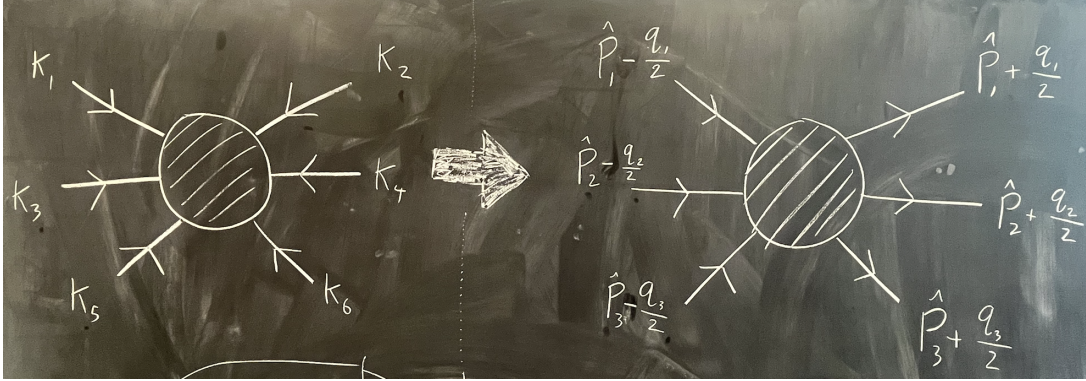 K₁
K₂
K₃
K₄
K₅
K₆
p̂₁ - q₁/2
p̂₁ + q₁/2
p̂₂ - q₂/2
p̂₂ + q₂/2
p̂₃ - q₃/2
p̂₃ + q₃/2